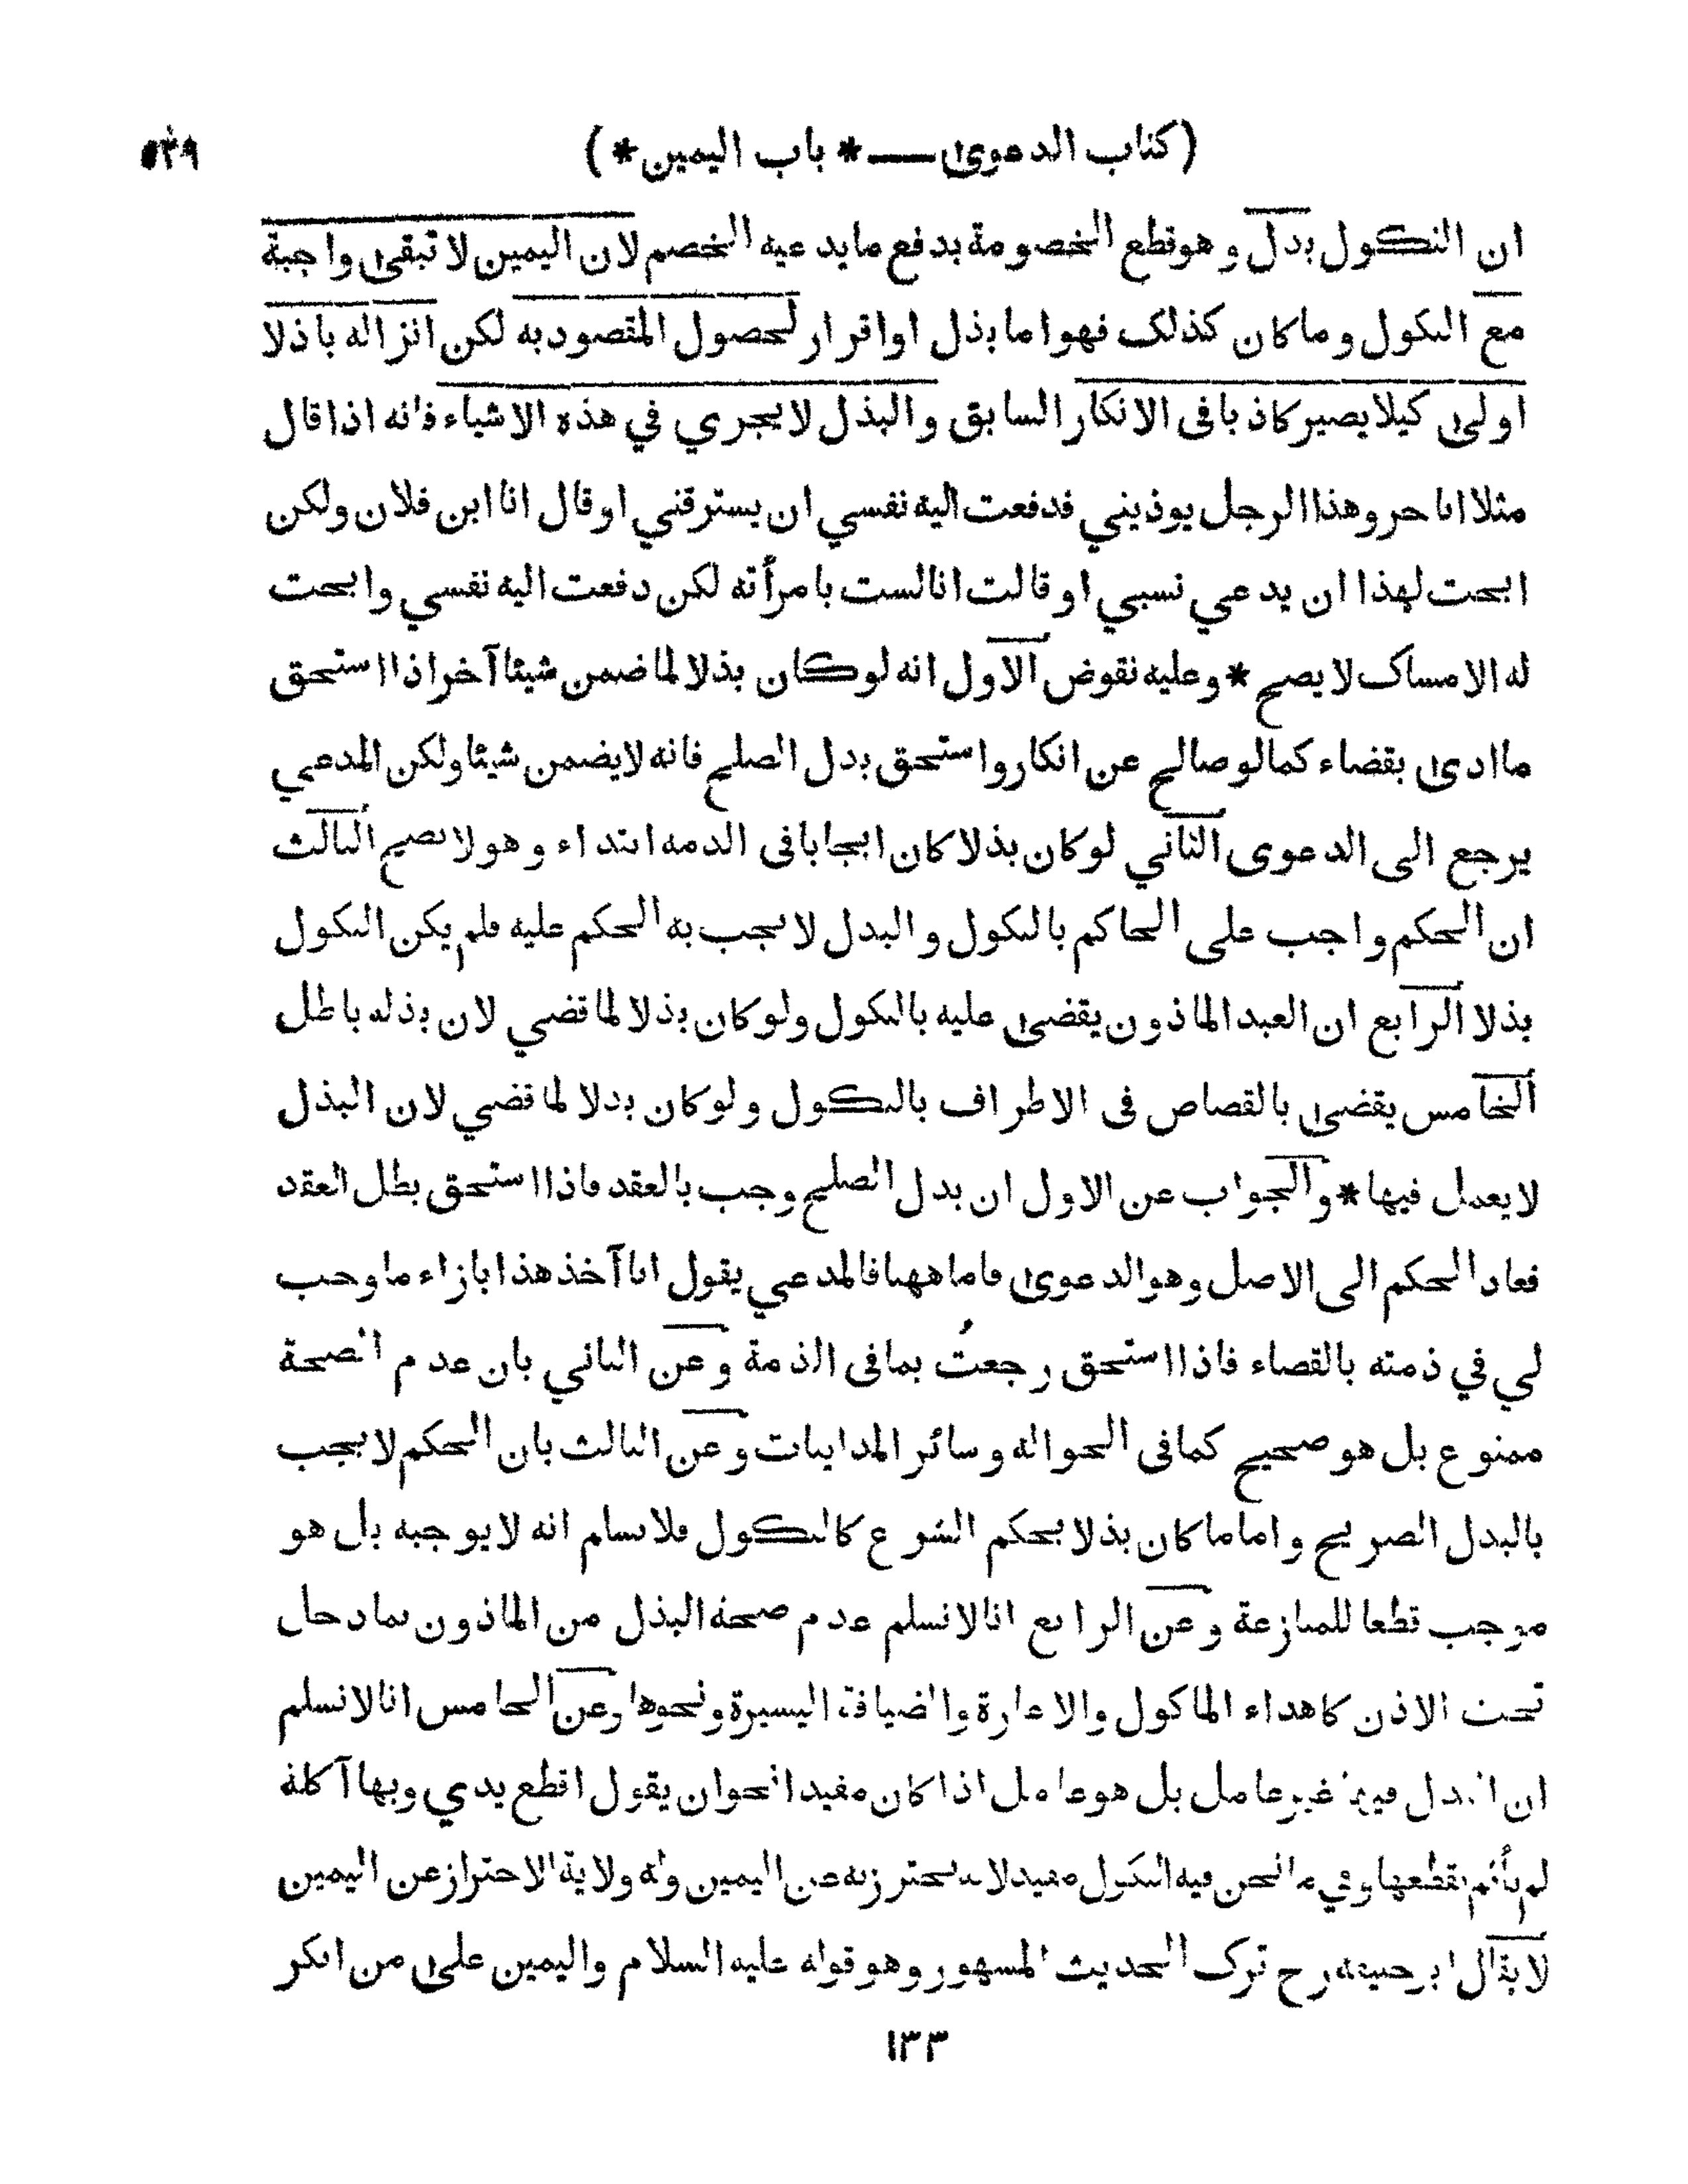 (كتاب الدعوى — * باب اليمين *) ٥٢٩
ان النكول بدل وهوقطع الخصومة بدفع مايدعيه الخصم لان اليمين لا تبقى واجبة
مع النكول وماكان كذلك فهواما بذل اواقرار لحصول المقصودبه لكن انزاله باذلا
اولى كيلا يصير كاذبافى الانكار السابق والبذل لايجري في هذه الاشياء فانه اذاقال
مثلا انا حر وهذا الرجل يوذيني فدفعت اليه نفسي ان يسترقني اوقال انا ابن فلان ولكن
ابحت لهذا ان يدعي نسبي اوقالت انالست بامرأته لكن دفعت اليه نفسي وابحت
له الامساك لايصح * وعليه نقوض الاول انه لوكان بذلا لما ضمن شيئا آخر اذا استحق
ماادى بقضاء كمالوصالح عن انكار واستحق بدل الصلح فانه لايضمن شيئا ولكن المدعي
يرجع الى الدعوى الثاني لوكان بذلا كان ايجابافى الذمه ابتداء وهو لايصح الثالث
ان الحكم واجب على الحاكم بالنكول والبدل لايجب به الحكم عليه فلم يكن النكول
بذلا الرابع ان العبد الماذون يقضى عليه بالنكول ولوكان بذلا لما قضي لان بذله باطل
الخامس يقضى بالقصاص فى الاطراف بالنكول ولوكان بدلا لما قضي لان البذل
لايعمل فيها * والجواب عن الاول ان بدل الصلح وجب بالعقد فاذا استحق بطل العقد
فعاد الحكم الى الاصل وهو الدعوى فاما ههنا فالمدعي يقول انا آخذ هذا بازاء ما وجب
لي في ذمته بالقضاء فاذا استحق رجعتُ بمافى الذمة وعن الثاني بان عدم الصحة
ممنوع بل هو صحيح كمافى الحوالة وسائر المداينات وعن الثالث بان الحكم لايجب
بالبدل الصريح واماماكان بذلا بحكم الشرع كالنكول فلانسلم انه لايوجبه بل هو
موجب قطعا للمنازعة وعن الرابع انالانسلم عدم صحة البذل من الماذون بمادخل
تحت الاذن كاهداء الماكول والاعارة والضيافة اليسيرة ونحوها وعن الخامس انالانسلم
ان البدل فيها غيرعامل بل هوعامل اذا كان مفيدا نحوان يقول اقطع يدي وبها آكلة
لم يأثم بقطعها وفي مانحن فيه النكول مفيدلانه يحترزبه عن اليمين وله ولاية الاحتراز عن اليمين
لايقال ابوحنيفه رح ترك الحديث المشهور وهوقوله عليه السلام واليمين على من انكر
١٣٣